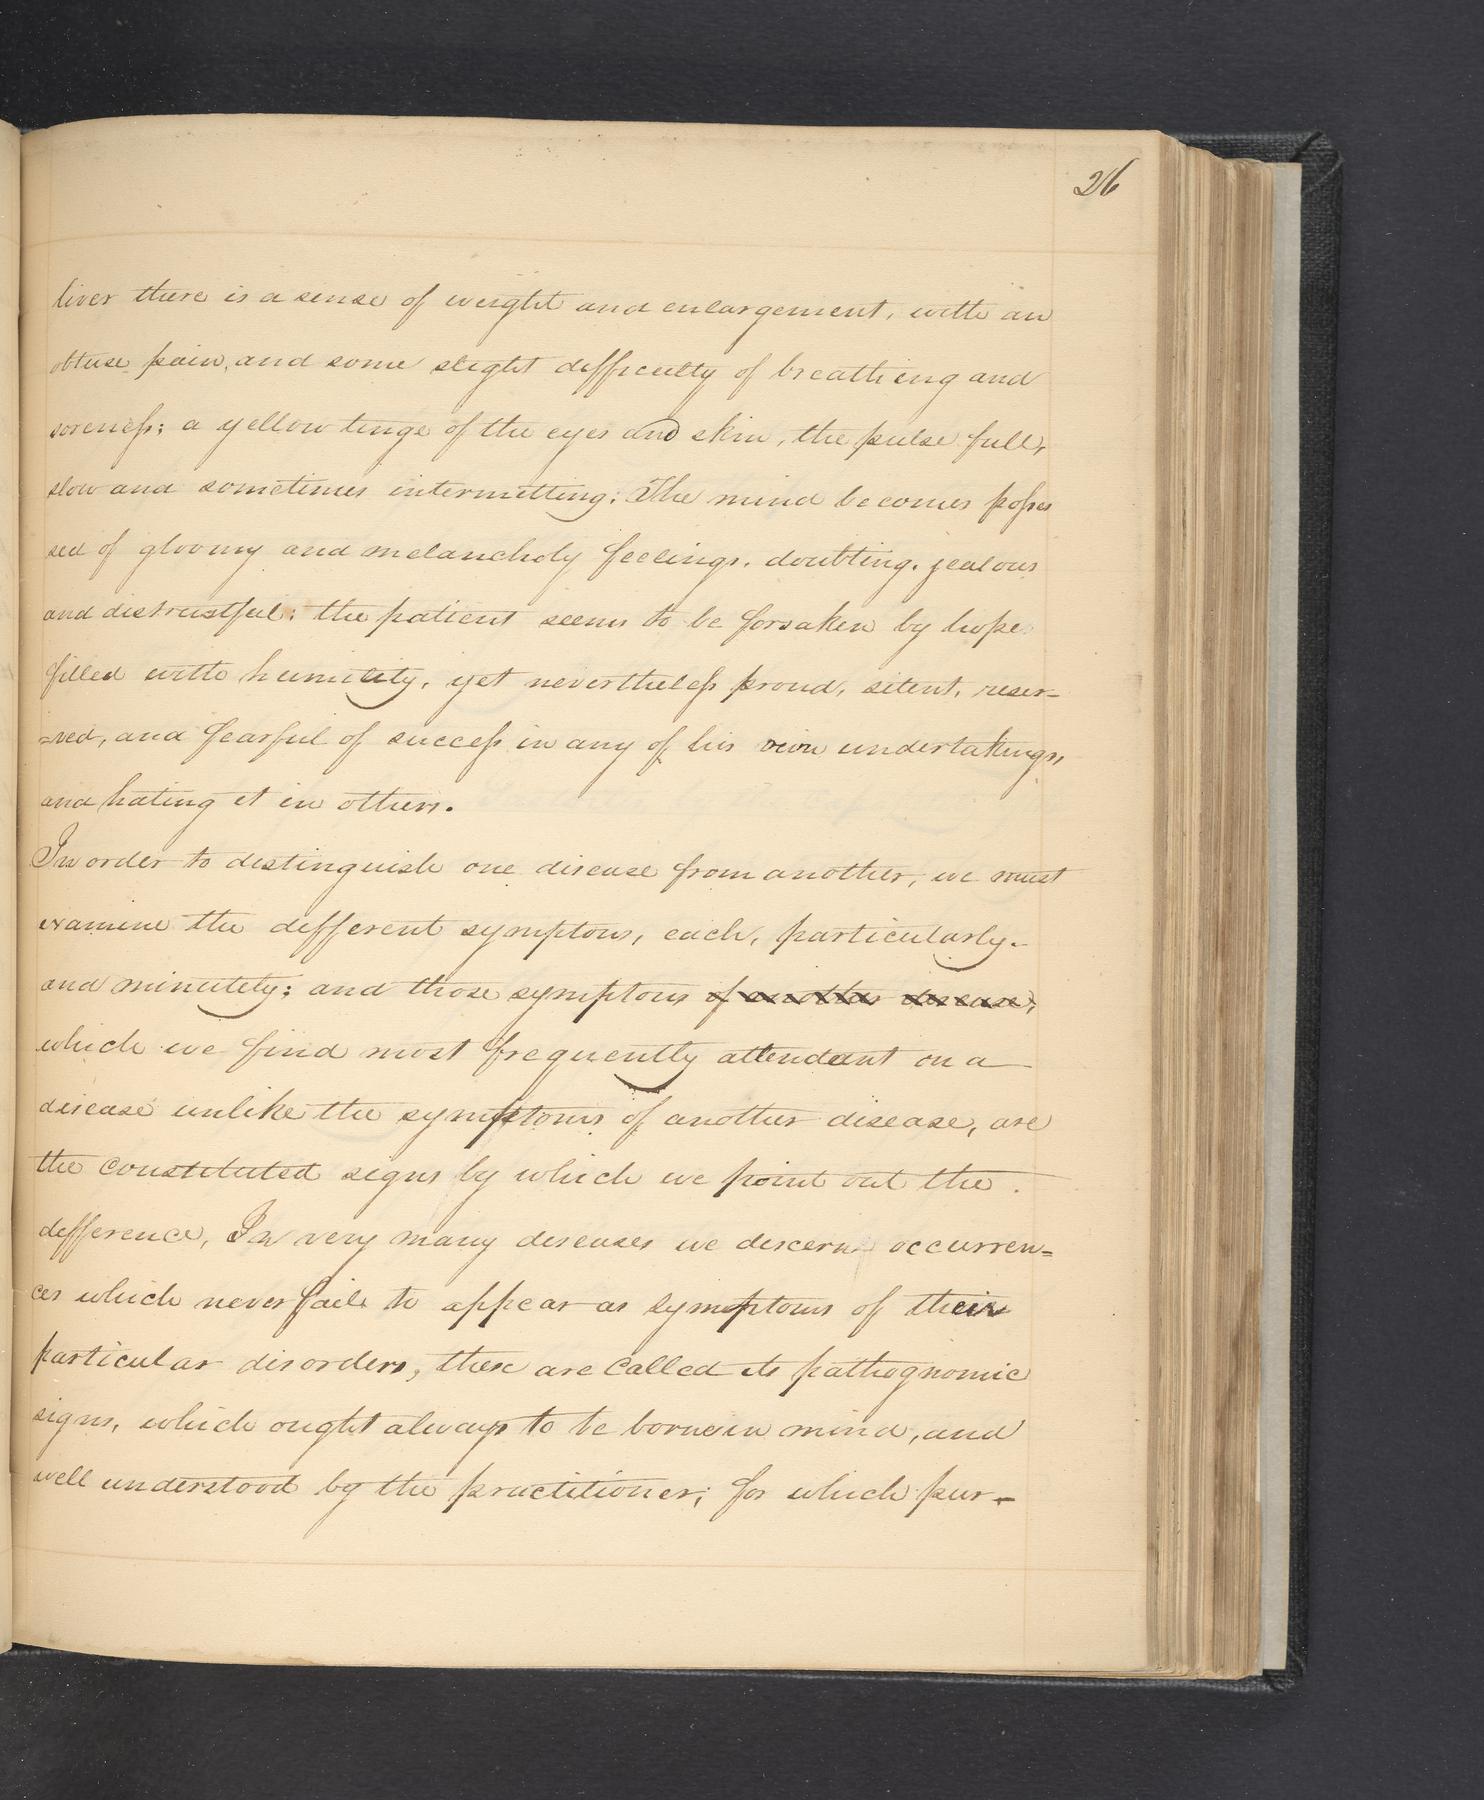 26
liver there is a sense of weight and enlargement, with an
obtuse pain, and some slight difficulty of breathing and
soreness; a yellow tinge of the eyes and skin, the pulse full,
slow and sometimes intermitting; The mind becomes posses
sed of gloomy and melancholy feelings, doubting, jealous
and distrustful; the patient seems to be forsaken by hope
filled with humility, yet nevertheless proud, silent, reser-
=ved, and fearful of success in any of his own undertakings,
and hating it in others.
In order to distinguish one disease from another, we must
examine the different symptoms, each, particularly-
and minutely; and those symptoms of another disease,
which we find most frequently attendant on a
disease unlike the symptoms of another disease, are
the constituted signs by which we point out the
difference, In very many diseases we discern occurren=
ces which never fail to appear as symptoms of their
particular disorders, these are called its pathognomic
signs, which ought always to be borne in mind, and
well understood by the practitioner; for which pur-